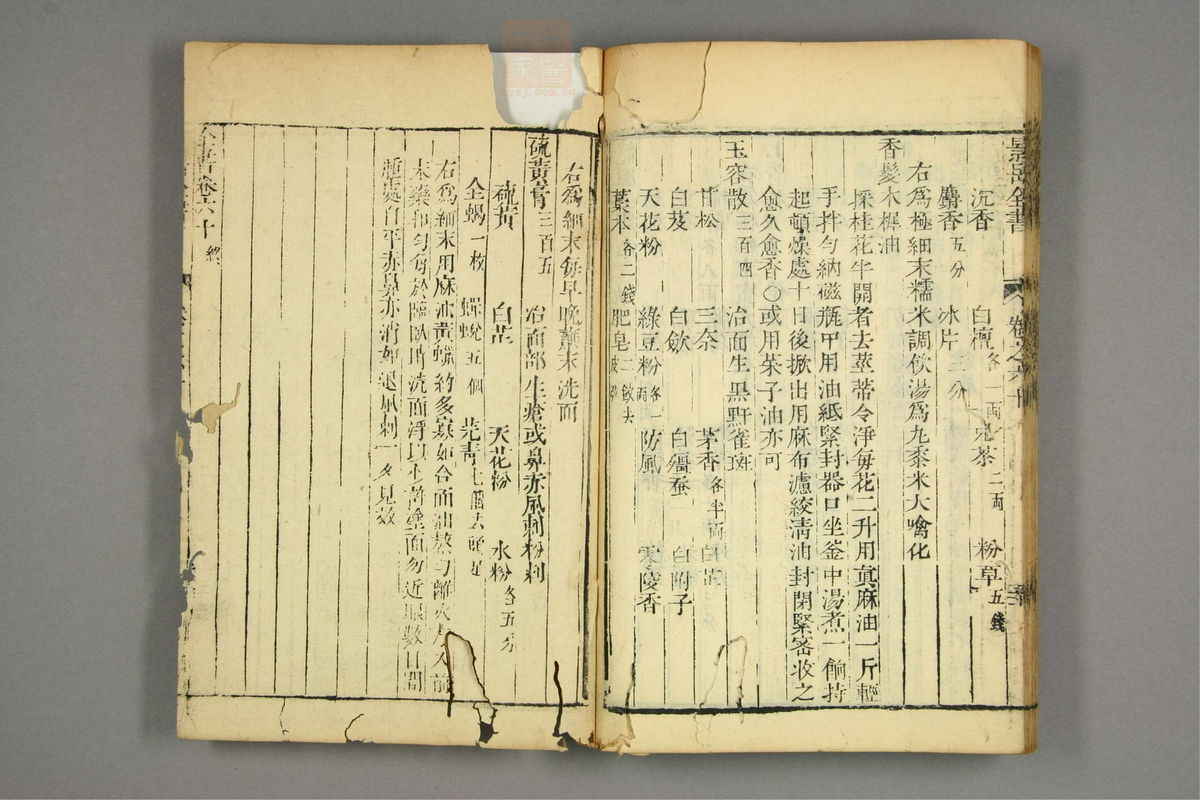 景岳全書 卷之六十
沉香 白檀各一両 兒茶二両 粉草五錢
麝香五分 冰片三分
右為極細末糯米調飲湯為丸黍米大噙化
香髮木樨油
採桂花半開者去莖蒂令淨每花二升用真麻油一斤輕
手拌勻納磁瓶中用油紙緊封器口坐釜中湯煮一餉持
起頓燥處十日後掀出用麻布濾絞清油封閉緊密收之
愈久愈香○或用茱子油亦可
玉容散三百四 治面生黑䵟雀斑
甘松 三奈 茅香各半両 白芷
白芨 白歛 白殭蚕 白附子
天花粉 綠豆粉各一両 防風 零陵香
藁本各二錢 肥皂二
右為細末每早晚蘸末洗面
硫黃膏三百五 治面部生瘡或鼻赤風刺粉刺
硫黃 白芷 天花粉 水粉各五分
全蝎一枚 蟬蛻五個 芫青七箇去頭足
右為細末用麻油黃蠟約多寡如合面油熬勻離火入前
末藥和勻每於臨臥時洗面淨以少許塗面勿近眼數日間
腫處自平赤鼻亦消如退風刺一夕見效
全書卷六十 終